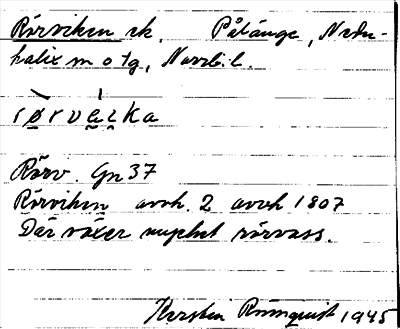 Rörviken vk. Pålänge, Neder-
kalix sn o tg, Norrb. l.
rørvèi̯ka
Rörv. Gn 37
Rörviken avvh. 2 avvh 1807
Där växer mycket rörvass.
Kerstin Rönnquist 1945